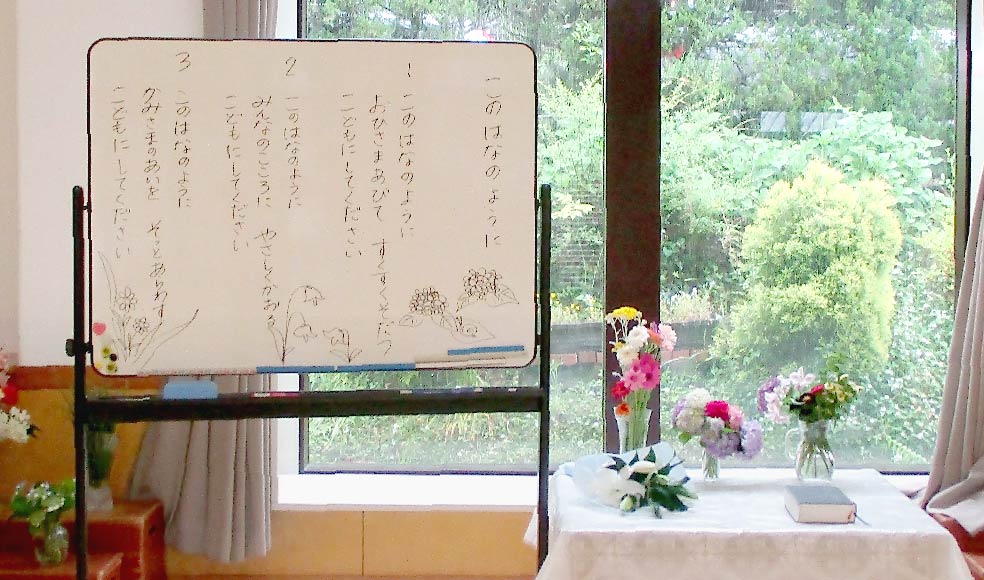 このはなのように
1
このはなのように
おひさまあびて すくすくそだつ
こどもにしてください
2
このはなのように
みんなのこころに やさしくかおる
こどもにしてください
3
このはなのように
かみさまのあいを そっとあらわす
こどもにしてください